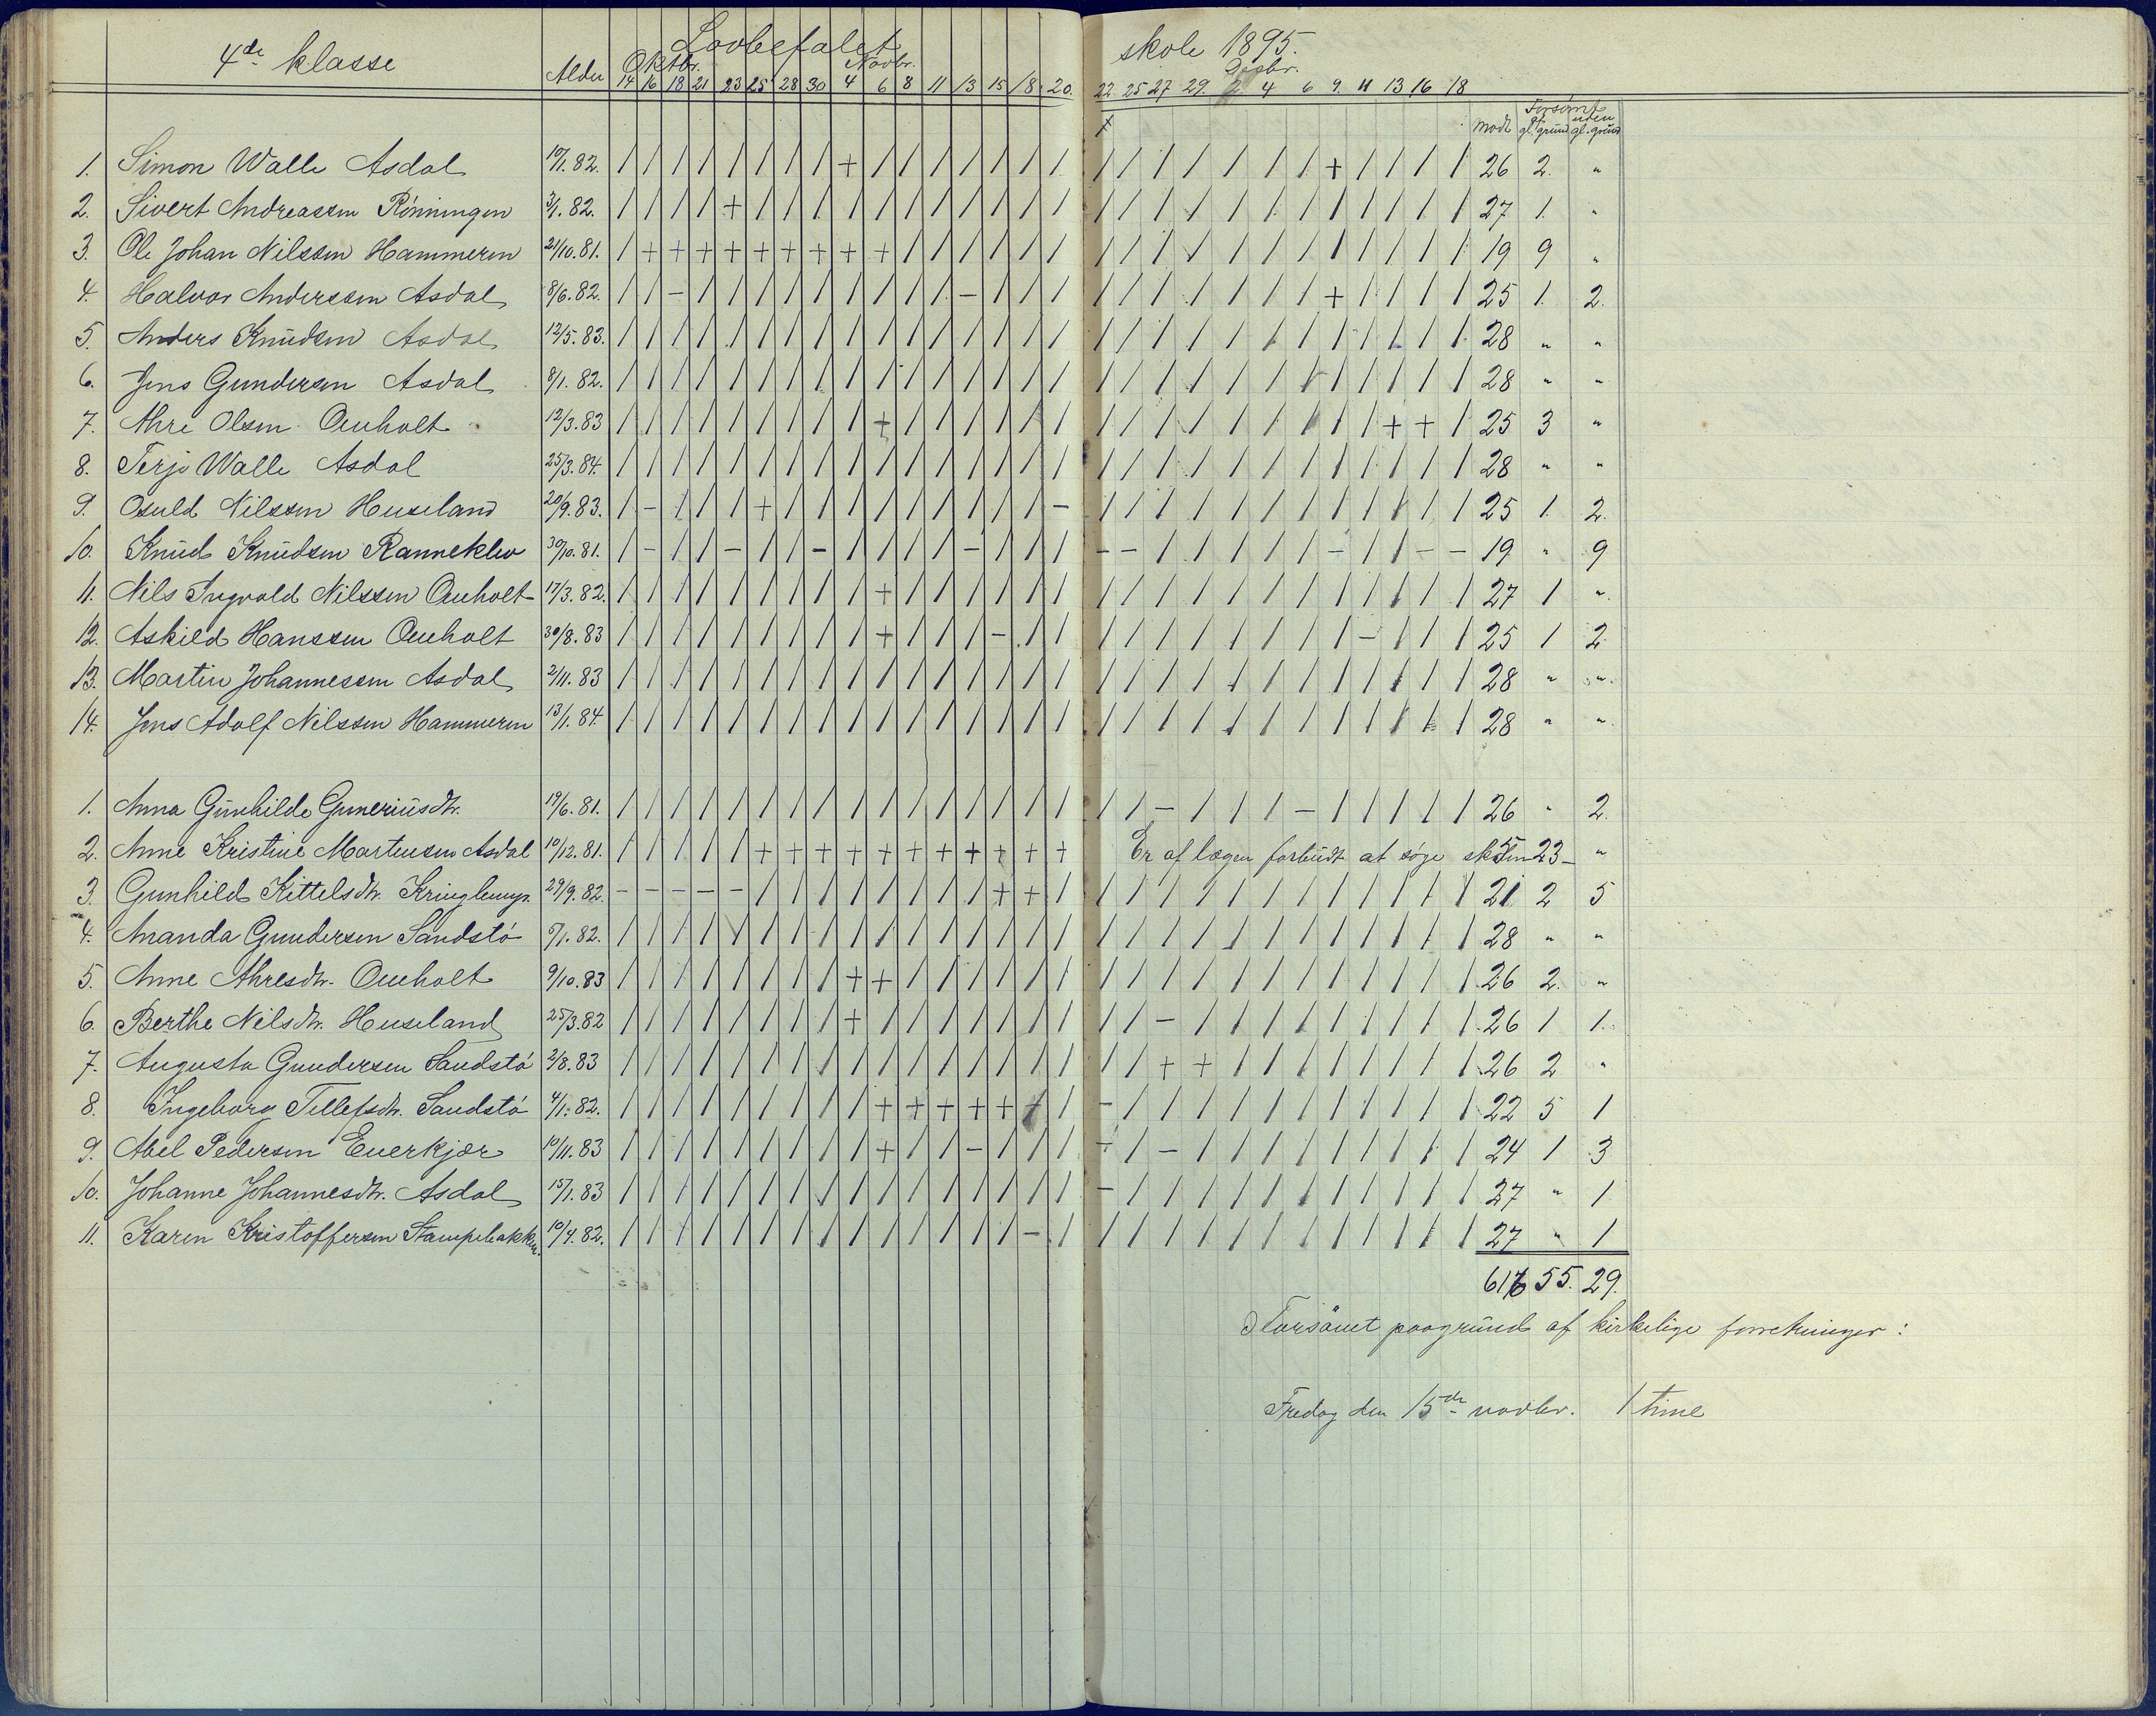 4de klasse Alder Lovbefalet skole 1895.
Oktbr. Novbr. Desbr.
14 16 18 21 23 25 28 30 4 6 8 11 13 15 18 20 22. 25 27 29. 2 4 6 9. 11 13 16 18
Forsømt
Mødt af gl. grund uden gl. grund
1. Simon Walle Asdal 10/1. 82. / / / / / / / / + / / / / / / / / / / / / / / + / / / / 26 2. "
2. Sivert Andreassen Rönningen 3/1. 82. / / / / + / / / / / / / / / / / / / / / / / / / / / / / 27 1. "
3. Ole Johan Nilssen Hammeren 21/10. 81. / + + + + + + + + + / / / / / / / / / / / / / / / / / / 19 9 "
4. Halvor Anderssen Asdal 8/6. 82. / / - / / / / / / / / / - / / / / / / / / / / + / / / / 25 1. 2.
5. Anders Knudsen Asdal 12/5. 83. / / / / / / / / / / / / / / / / / / / / / / / / / / / / 28 " "
6. Jens Gundersen Asdal 8/1. 82. / / / / / / / / / / / / / / / / / / / / / / / / / / / / 28 " "
7. Ahre Olsen Ouholt 12/3. 83 / / / / / / / / / + / / / / / / / / / / / / / / / + + / 25 3 "
8. Terje Walle Asdal 25/3. 84. / / / / / / / / / / / / / / / / / / / / / / / / / / / / 28 " "
9. Osuld Nilssen Huseland 20/9. 83. / - / / / + / / / / / / / / / - / / / / / / / / / / / / 25 1. 2.
10. Knud Knudsen Ranneklev 30/10. 81. / - / / - / / - / / / / - / / / - - / / / / / - / / - - 19 " 9
11. Nils Ingvald Nilssen Ouholt 17/3. 82. / / / / / / / / / + / / / / / / / / / / / / / / / / / / 27 1 "
12. Askild Hanssen Ouholt 30/8. 83 / / / / / / / / / + / / / - / / / / / / / / / / - / / / 25 1 2
13. Martin Johannessen Asdal 2/11. 83 / / / / / / / / / / / / / / / / / / / / / / / / / / / / 28 " "
14. Jens Adolf Nilssen Hammeren 13/1. 84. / / / / / / / / / / / / / / / / / / / / / / / / / / / / 28 " "
1. Anna Gunhilde Guneriusdtr. 19/6. 81. / / / / / / / / / / / / / / / / / / - / / / - / / / / / 26 " 2.
2. Anne Kristine Martensen Asdal 10/12. 81. / / / / / + + + + + + + + + + + Er af lægen forbudt at søge skolen 5 23 "
3. Gunhild Kittelsdtr. 29/9. 82. - - - - - / / / / / / / / + + / / / / / / / / / / / / / 21 2 5
4. Ananda Gundersen Sandstö 5/1. 82. / / / / / / / / / / / / / / / / / / / / / / / / / / / / 28 " "
5. Anne Ahresdtr. Ouholt 9/10. 83 / / / / / / / / + + / / / / / / / / / / / / / / / / / / 26 2. "
6. Berthe Nilsdtr. Huseland 25/3. 82 / / / / / / / / + / / / / / / / / / - / / / / / / / / / 26 1 1.
7. Augusta Gundersen Sandstö 2/8. 83 / / / / / / / / / / / / / / / / / / + + / / / / / / / / 26 2 "
8. Ingeborg Tellefsdtr. Sandstö 4/1. 82. / / / / / / / / / + + + + + / / - / / / / / / / / / / / 22 5 1
9. Abel Pedersen Euerkjær 10/11. 83 / / / / / / / / / + / / - / / / - / - / / / / / / / / / 24 1 3
10. Johanne Johannesdtr. Asdal 15/1. 83 / / / / / / / / / / / / / / / / - / / / / / / / / / / / 27 " 1
11. Karen Kristoffersen Stampebakken. 10/4. 82. / / / / / / / / / / / / / / - / / / / / / / / / / / / / 27 " 1
616 55. 29.
Forsömt paagrund af kirkelige forretninger:
Fredag den 15de novbr. 1 time